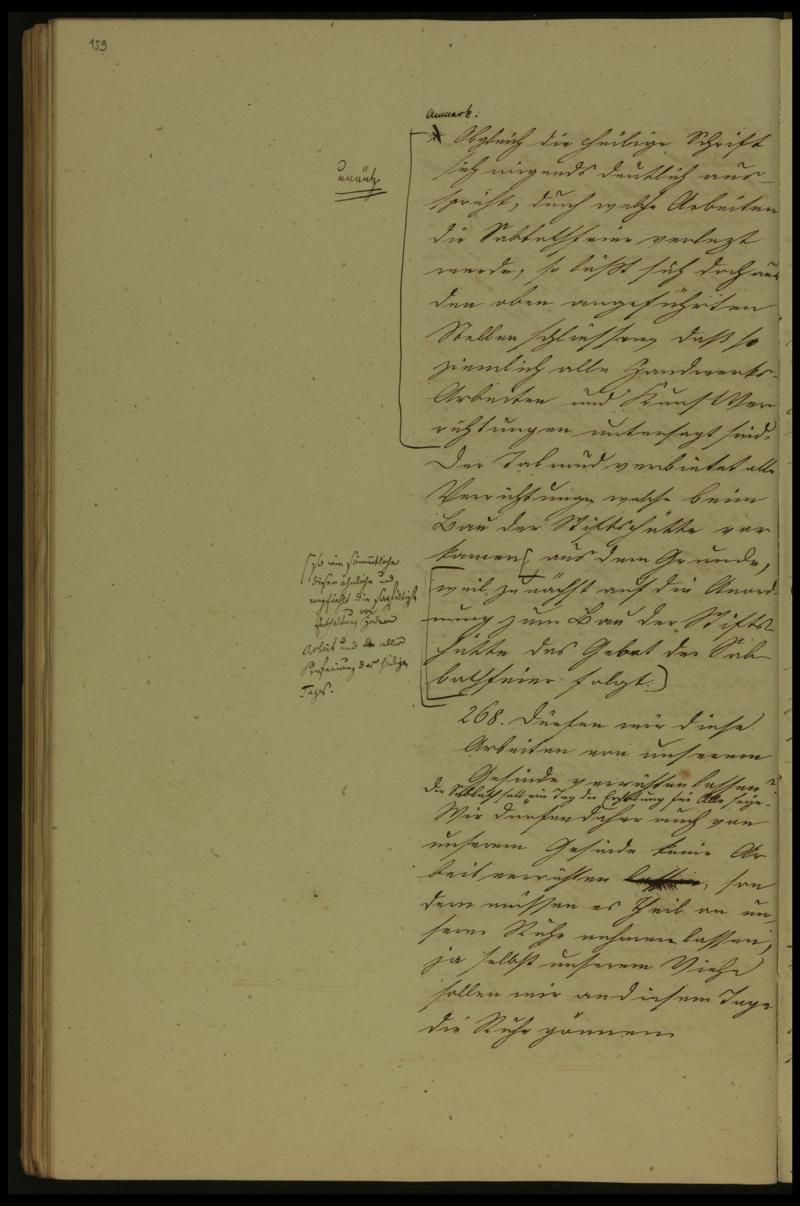 159
Anmerk:
* Obgleich die heilige Schrift
sich nirgends deutlich aus-
spricht, durch welche Arbeiten
die Sabbathfeier verlezt
werde, so läßt sich doch aus
den oben angeführten
Stellen schliessen, daß so
ziemlich alle Handwerks-
Arbeiten und Kunst Ver
richtungen untersagt sind.
unnütz.
Der Talmud verbietet alle
Verrichtungen welche beim
Bau der Stiftshütte vor
kamen, aus dem Grunde,
weil zunächst auf die Anord-
nung zum Bau der Stifts-
hütte das Gebot der Sab-
bathfeier folgt.)
so wie sämmtliche
diesen ähnliche und
empfiehlt die sorgfältigste
Enthaltung von jeder
Arbeit und aller
des heiligen
Tages.
268. Dürfen wir diese
Arbeiten von unserem
Gesinde verrichten lassen?
Der Sabbath soll ein Tag der Erholung für Alle seyn.
Wir dürfen daher auch von
unserem Gesinde keine Ar
beit verrichten lassen, son
dern müssen es Theil an un
serer Ruhe nehmen lassen,
ja selbst unserem Viehe
sollen wir an diesem Tage
die Ruhe gönnen.